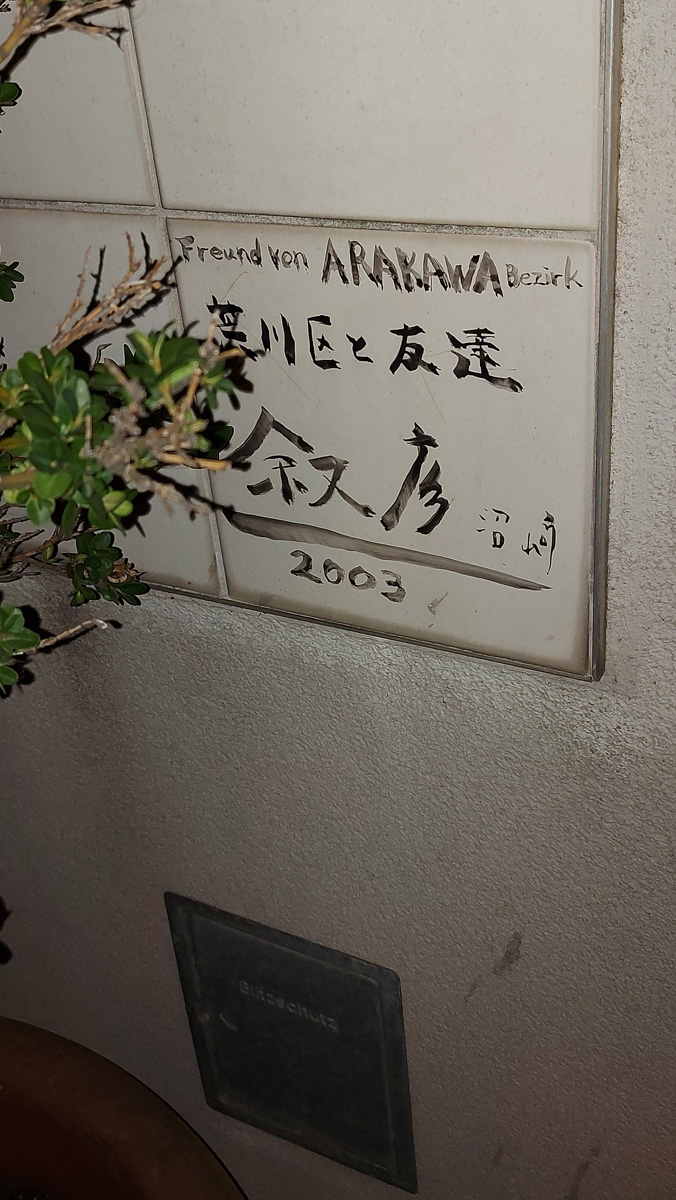 Freund von ARAKAWA Bezirk
荒川区と友達
叙彦
沼崎
2003
Blitzschutz